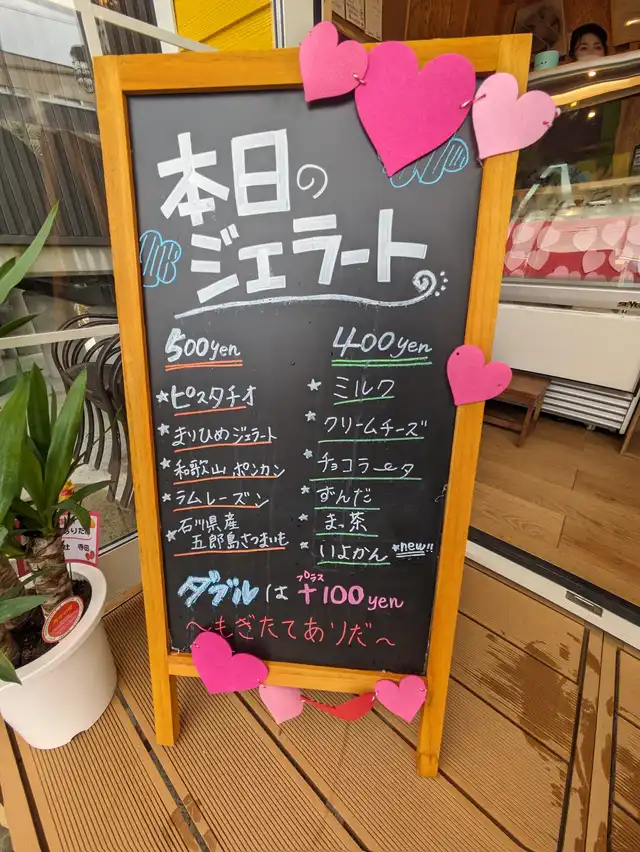 本日の
ジェラート
500yen
★ピスタチオ
★まりひめジェラート
★和歌山ポンカン
★ラムレーズン
★石川県産
五郎島さつまいも
400yen
★ミルク
★クリームチーズ
★チョコラータ
★ずんだ
★まっ茶
★いよかん *new!!
プラス
ダブルは+100yen
〜もぎたてありだ〜